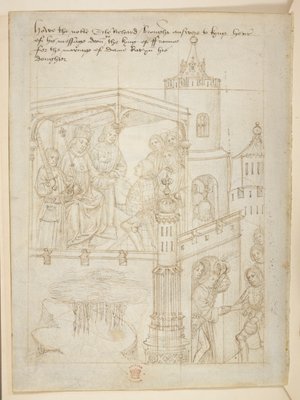 Howe the noble Erle Richard brought answere to kyng Henr
of his message from the kyng of ffraunce
for the mariage of Dame Kateryn his
doughter